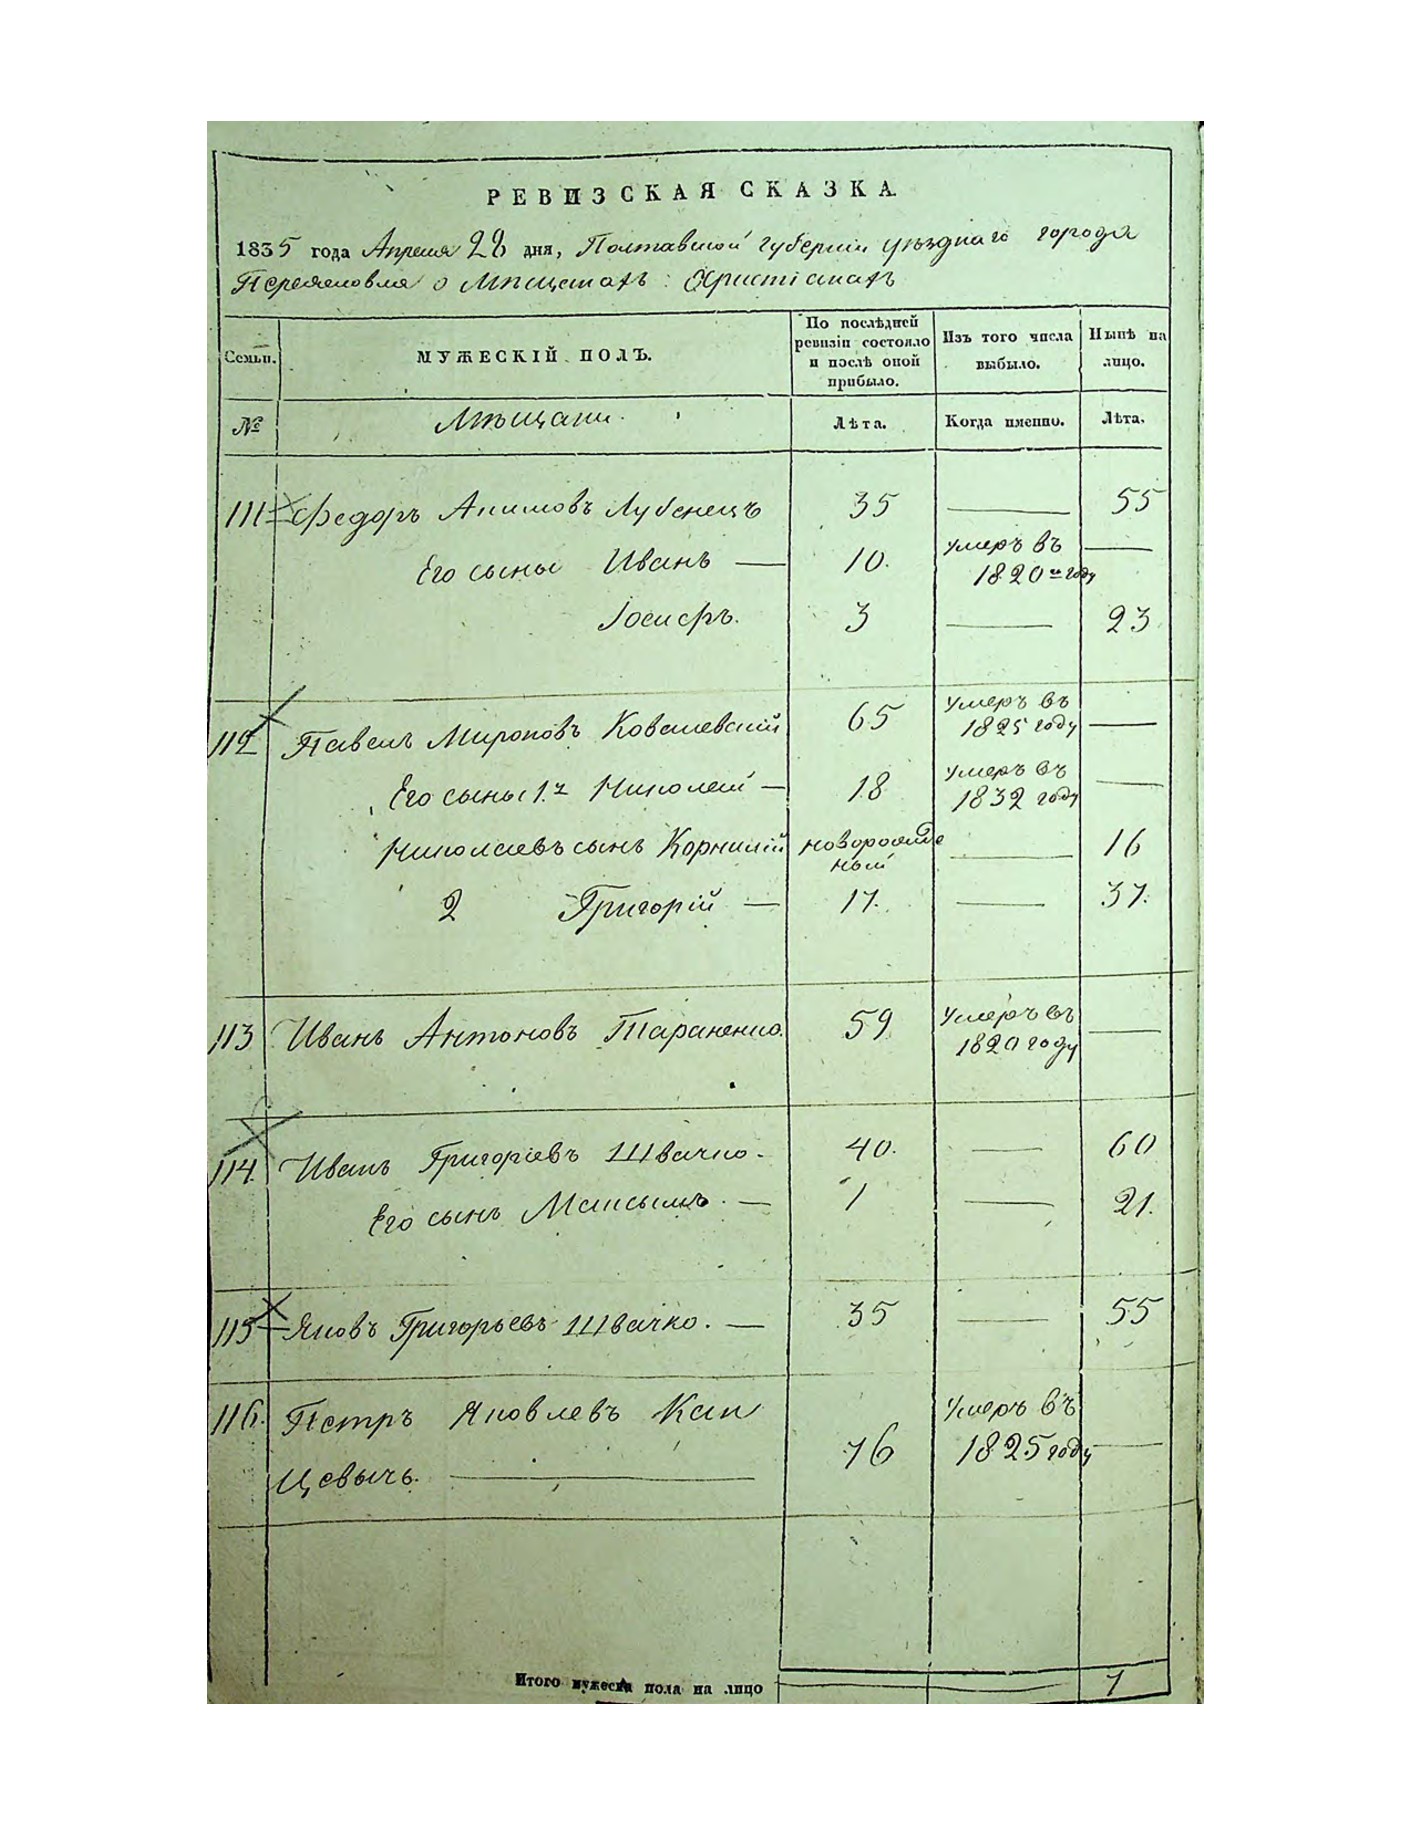 РЕВИЗСКАЯ СКАЗКА.
1835 года Апреля 28 дня, Полтавской губернии уѣзднаго города
Переяславля о Мѣщанахъ: Христіанахъ
Семьи.
МУЖЕСКІЙ ПОЛЪ.
По послѣдней ревизіи состояло и послѣ оной прибыло.
Изъ того числа выбыло.
Нынѣ на лицо.
№
Мѣщани.
Лѣта.
Когда именно.
Лѣта.
111 Федоръ Акимовъ Лубенецъ 35 — 55
Его сыны Иванъ — 10. умеръ въ 1820м году —
Іосифъ. 3 — 23
112 Павелъ Мироновъ Ковалевскій 65 умеръ въ 1825 году —
Его сыны 1.й Николай — 18 умеръ въ 1832 году —
Николаевъ сынъ Корнилій новорожденный — 16
2 Григорій — 17. — 37.
113 Иванъ Антоновъ Тараненко. 59 Умеръ въ 1820 году —
114. Иванъ Григоріевъ Швачко. 40. — 60
Его сынъ Максымъ. — 1 — 21.
115 Яковъ Григорьевъ Швачко. — 35 — 55
116. Петръ Яковлевъ Кан
цевычь. — 76 Умеръ въ 1825 году —
Итого мужеска пола на лицо 7